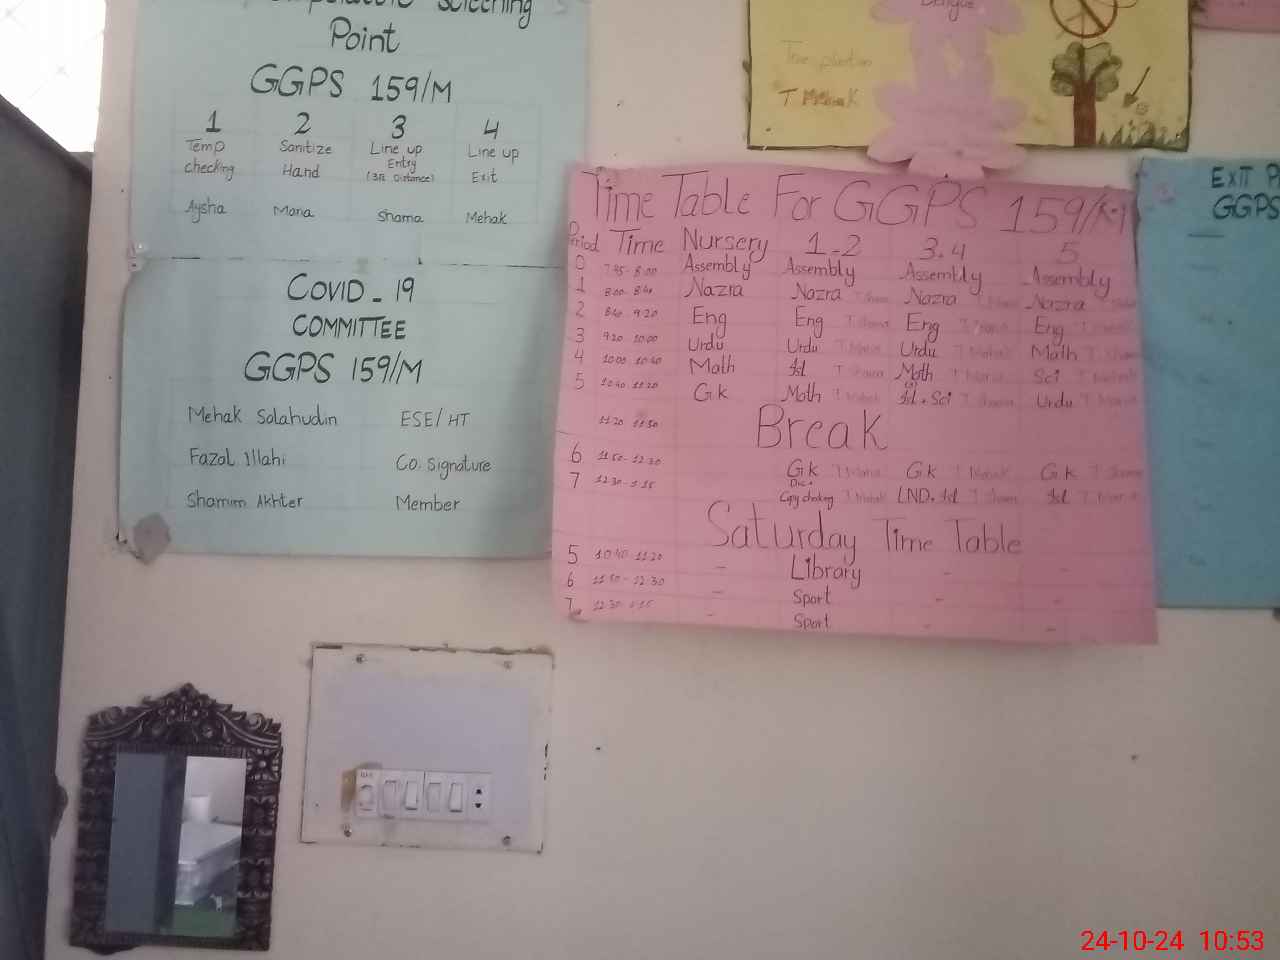 Screening
Point
GGPS 159/M
1 2 3 4
Temp checking Sanitize Hand Line up Entry (3ft Distance) Line up Exit
Aysha Maria Shama Mehak
COVID_19
COMMITTEE
GGPS 159/M
Mehak Salahudin ESE/HT
Fazal Illahi Co. Signature
Shamim Akhter Member
Dengue
Tree plantion
T Mehak
Time Table For GGPS 159/M
Period Time Nursery 1-2 3.4 5
0 7:45-8:00 Assembly Assembly Assembly Assembly
1 8:00-8:40 Nazra Nazra Nazra Nazra
2 8:40-9:20 Eng Eng Eng Eng
3 9:20 10:00 Urdu Urdu Urdu Math
4 10:00 10:40 Math Isl Math Sci
5 10:40-11:20 G.k Math Isl+Sci Urdu
11:20 11:50 Break
6 11:50-12:30 G.k G.k G.k
7 12:30-1:15 Copy checking LND+Isl Isl
Saturday Time Table
5 10:40-11:20 - Library - -
6 11:50-12:30 - Sport - -
7 12:30-1:15 - Sport - -
EXIT
GGPS
24-10-24 10:53